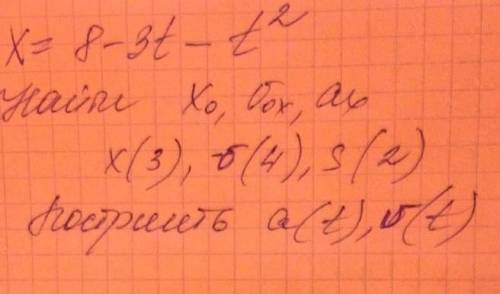 X = 8 - 3t - t²
Найти X₀, υ₀ₓ, aₓ
x(3), υ(4), S(2)
Построить a(t), υ(t)